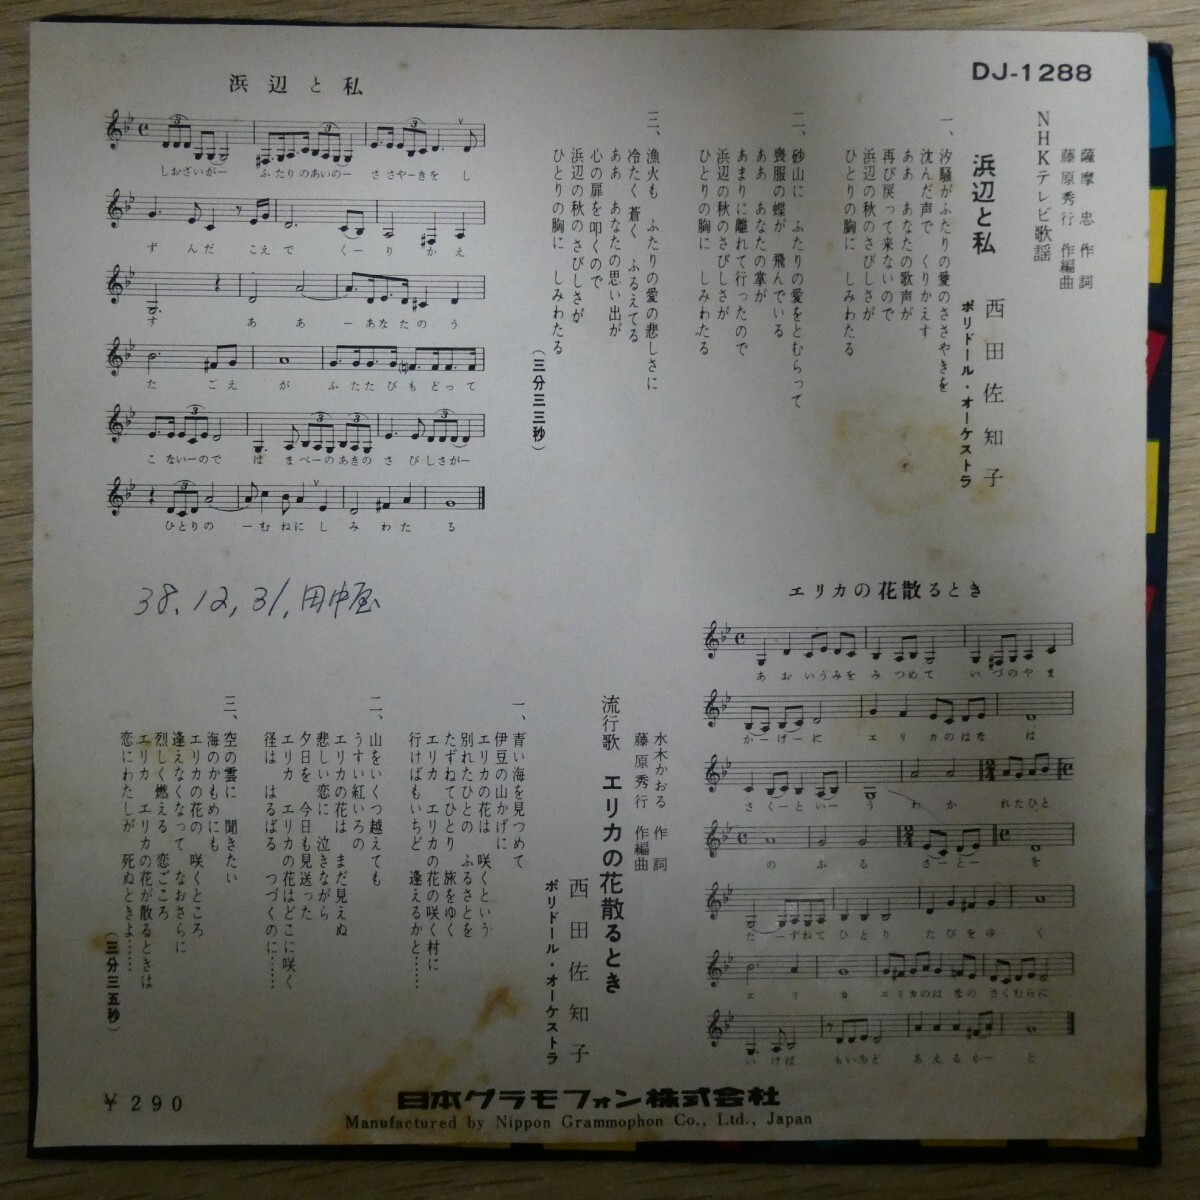 DJ-1288
NHKテレビ歌謡
薩摩忠 作詞
藤原秀行 作編曲
浜辺と私
西田佐知子
ポリドール・オーケストラ
一、
汐騒がふたりの愛のささやきを
沈んだ声で くりかえす
ああ あなたの歌声が
再び戻って来ないので
浜辺の秋のさびしさが
ひとりの胸に しみわたる
二、
砂山に ふたりの愛をとむらって
喪服の蝶が 飛んでいる
ああ あなたの掌が
あまりに離れて行ったので
浜辺の秋のさびしさが
ひとりの胸に しみわたる
三、
漁火も ふたりの愛の悲しさに
冷たく 蒼く ふるえてる
ああ あなたの思い出が
心の扉を叩くので
浜辺の秋のさびしさが
ひとりの胸に しみわたる
(三分三三秒)
浜辺と私
しおざいがー ふたりのあいのー ささやーきをし
ずんだ こえで くーりかえ
す ああーあなたのう
たごえが ふたたびもどって
こないーので はまべーのあきの さびしさがー
ひとりの ーむねにしみわたる
38.12,31,田中屋
エリカの花散るとき
あおいうみをみつめて いづのやま
かーげーに エリカのはなは
さくーといーうわかれたひと
のふるさーとーを
たーずねてひとり たびをゆく
エリカ エリカのはなのさくむらに
いけば もいちど あえるかーと
流行歌
水木かおる 作詞
藤原秀行 作編曲
エリカの花散るとき
西田佐知子
ポリドール・オーケストラ
一、
青い海を見つめて
伊豆の山かげに
エリカの花は 咲くという
別れたひとの ふるさとを
たずねてひとり 旅をゆく
エリカ エリカの花の咲く村に
行けばもいちど 逢えるかと……
二、
山をいくつ越えても
うすい紅いろの
エリカの花は まだ見えぬ
悲しい恋に 泣きながら
夕日を 今日も見送った
エリカ エリカの花はどこに咲く
径は はるばる つづくのに……
三、
空の雲に 聞きたい
海のかもめにも
エリカの花の 咲くところ
逢えなくなって なおさらに
烈しく燃える 恋ごころ
エリカ エリカの花が散るときは
恋にわたしが 死ぬときよ……
(三分三五秒)
¥290
日本グラモフォン株式会社
Manufactured by Nippon Grammophon Co., Ltd., Japan